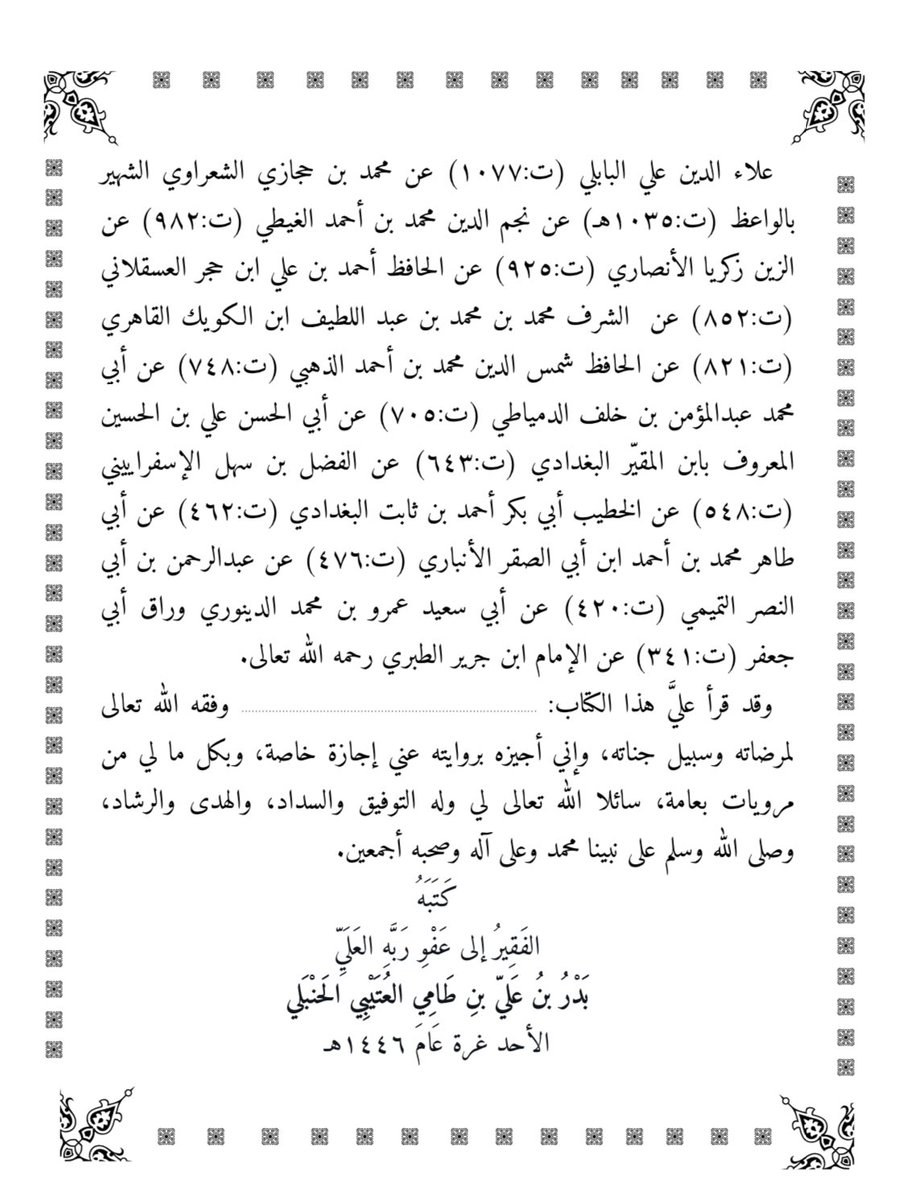 علاء الدين علي البابلي (ت:١٠٧٧) عن محمد بن حجازي الشعراوي الشهير
بالواعظ (ت:١٠٣٥هـ) عن نجم الدين محمد بن أحمد الغيطي (ت:٩٨٢) عن
الزين زكريا الأنصاري (ت:٩٢٥) عن الحافظ أحمد بن علي ابن حجر العسقلاني
(ت:٨٥٢) عن الشرف محمد بن محمد بن عبد اللطيف ابن الكويك القاهري
(ت:٨٢١) عن الحافظ شمس الدين محمد بن أحمد الذهبي (ت:٧٤٨) عن أبي
محمد عبدالمؤمن بن خلف الدمياطي (ت:٧٠٥) عن أبي الحسن علي بن الحسين
المعروف بابن المقيّر البغدادي (ت:٦٤٣) عن الفضل بن سهل الإسفراييني
(ت:٥٤٨) عن الخطيب أبي بكر أحمد بن ثابت البغدادي (ت:٤٦٢) عن أبي
طاهر محمد بن أحمد ابن أبي الصقر الأنباري (ت:٤٧٦) عن عبدالرحمن بن أبي
النصر التميمي (ت:٤٢٠) عن أبي سعيد عمرو بن محمد الدينوري وراق أبي
جعفر (ت:٣٤١) عن الإمام ابن جرير الطبري رحمه الله تعالى.
وقد قرأ عليَّ هذا الكتاب: ........................ وفقه الله تعالى
لمرضاته وسبيل جناته، وإني أجيزه بروايته عني إجازة خاصة، وبكل ما لي من
مرويات بعامة، سائلا الله تعالى لي وله التوفيق والسداد، والهدى والرشاد،
وصلى الله وسلم على نبينا محمد وعلى آله وصحبه أجمعين.
كَتَبَهُ
الفَقِيرُ إلى عَفْوِ رَبَّهِ العَلَيِّ
بَدْرُ بنُ عَلَيِّ بنِ طَامِي العُتَيْبِي الحَنْبَلي
الأحد غرة عَامَ ١٤٤٦هـ